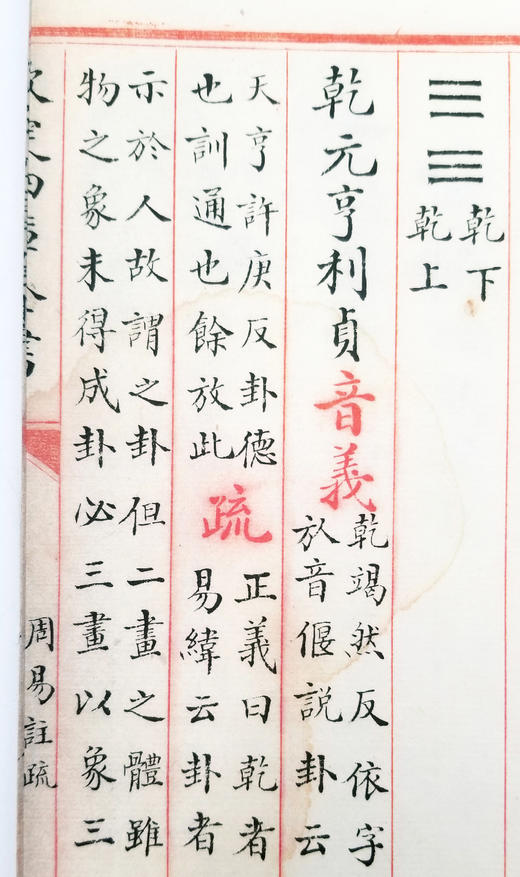 ☰☰
乾下
乾上
乾元亨利貞音義
乾竭然反依字
㫃音偃説卦云
天亨許庚反卦德
也訓通也餘放此
疏
正義曰乾者
易緯云卦者
示於人故謂之卦但二畫之體雖
物之象未得成卦必三畫以象三
欽定四庫全書
周易註疏